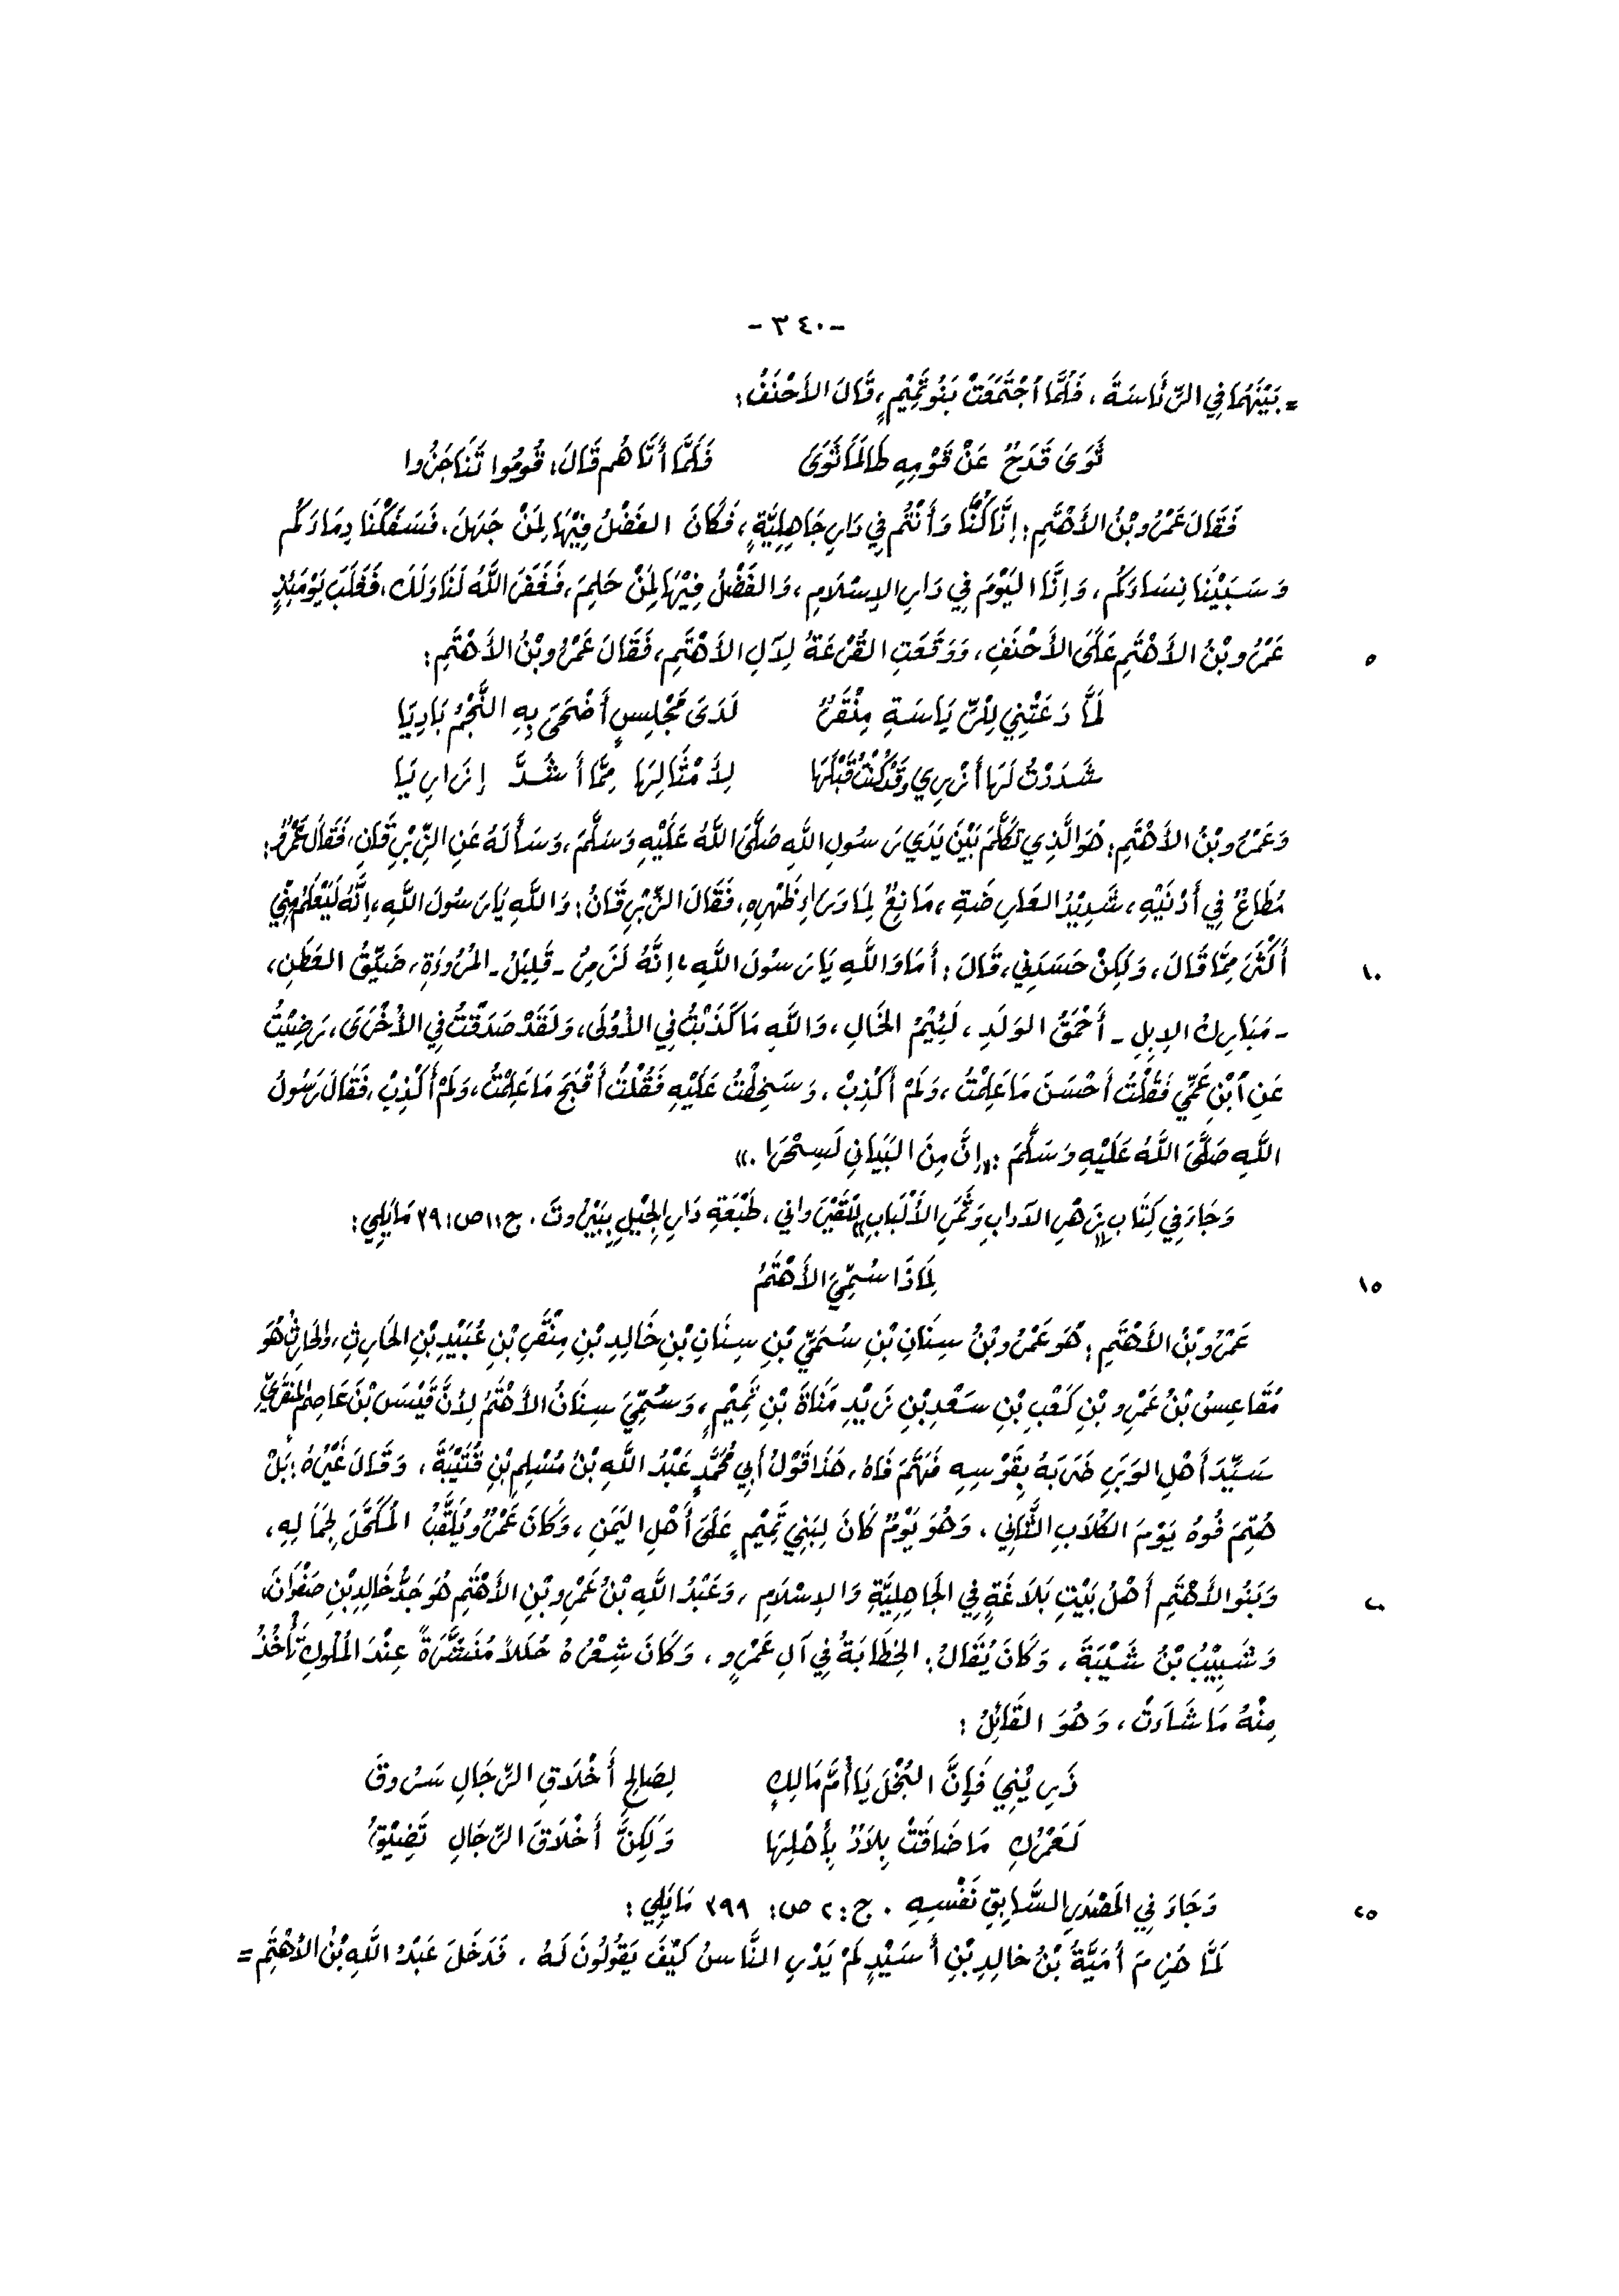 -٣٤٠-
= بَيْنَهُمَا فِي الرِّئَاسَةَ، فَلَمَّا اُجْتَمَعَتْ بَنُو تَمِيْمٍ، قَالَ الأَحْنَفُ:
ثَوَى قَدَحٌ عَنْ قَوْمِهِ طَالَمَا ثَوَى فَلَمَّا أَتَاهُم قَالَ: قُومُوا تَنَاجَزُوا
فَقَالَ عَمْرُو بْنُ الأَهْتَمِ: إِنَّا كُنَّا وَأَنْتُم فِي دَارِ جَاهِلِيَّةٍ، فَكَانَ الفَضْلُ فِيْهَا لِمَنْ جَهَلَ، فَسَفَكْنَا دِمَاءَكُم
وَسَبَيْنَا نِسَاءَكُم، وَإِنَّا اليَوْمَ فِي دَارِ الإِسْلَامِ، وَالفَضْلُ فِيْهَا لِمَنْ حَلِمَ، فَغَفَرَ اللَّهُ لَنَا وَلَكَ، فَغَلَبَ يَوْمَئِذٍ
عَمْرُو بْنُ الأَهْتَمِ عَلَى الأَحْنَفِ، وَوَقَعَتِ القُرْعَةُ لِآلِ الأَهْتَمِ، فَقَالَ عَمْرُو بْنُ الأَهْتَمِ: ٥
لَمَّا دَعَتْنِي لِلرِّيَاسَةِ مِنْقَرٌ لَدَى مَجْلِسٍ أَضْحَى بِهِ النَّجْمُ بَادِيَا
شَدَدْتُ لَهَا أَزْرِي وَقَدْ كُنْتُ قَبْلَهَا لِأَمْثَالِهَا مِمَّا أَشُدُّ إِزَارِيَا
وَعَمْرُو بْنُ الأَهْتَمِ: هُوَ الَّذِي تَكَلَّمَ بَيْنَ يَدَي رَسُولِ اللَّهِ صَلَّى اللَّهُ عَلَيْهِ وَسَلَّمَ، وَسَأَلَهُ عَنِ الزِّبْرِقَانِ، فَقَالَ عَمْرٌو:
مُطَاعٌ فِي أَدْنَيْهِ، شَدِيْدُ العَارِضَةِ، مَانِعٌ لِمَا وَرَاءِ ظَهْرِهِ، فَقَالَ الزِّبْرِقَانُ: وَاللَّهِ يَا رَسُولَ اللَّهِ، إِنَّهُ لَيَعْلَمُ مِنِّي
أَكْثَرَ مِمَّا قَالَ، وَلَكِنْ حَسَدَنِي، قَالَ: أَمَا وَاللَّهِ يَا رَسُولَ اللَّهِ، إِنَّهُ لَزَمِرُ - قَلِيْلُ - المُرُوءَةِ، ضَيِّقُ العَطَنِ، ١٠
- مَبَارِكُ الإِبِلِ - أَحْمَقُ الوَلَدِ، لَئِيْمُ الخَالِ، وَاللَّهِ مَا كَذَبْتُ فِي الأُوْلَى، وَلَقَدْ صَدَقْتُ فِي الأُخْرَى، رَضِيْتُ
عَنِ اُبْنِ عَمِّي فَقُلْتُ أَحْسَنَ مَا عَلِمْتُ، وَلَمْ أَكْذِبْ، وَسَخِطْتُ عَلَيْهِ فَقُلْتُ أَقْبَحَ مَا عَلِمْتُ، وَلَمْ أَكْذِبْ، فَقَالَ رَسُولُ
اللَّهِ صَلَّى اللَّهُ عَلَيْهِ وَسَلَّمَ: «إِنَّ مِنَ البَيَانِ لَسِحْرَا.»
وَجَاءَ فِي كِتَابِ «زَهْرِ الآدابِ وَثَمَرِ الأَلْبَابِ» لِلْقَيْرَوانِي، طَبْعَةِ دَارِ الجَيْلِ بِبَيْرُوتَ. ج: ١ ص: ٣٩ مَا يَلِي:
لِمَاذَا سُمِّيَ الأَهْتَمُ ١٥
عَمْرُو بْنُ الأَهْتَمِ: هُوَ عَمْرُو بْنُ سِنَانِ بْنِ سُمَيِّ بْنِ سِنَانِ بْنِ خَالِدِ بْنِ مِنْقَرِ بْنِ عُبَيْدِ بْنِ الحَارِثِ، وَالحَارِثُ هُوَ
مُقَاعِسُ بْنُ عَمْرِو بْنِ كَعْبِ بْنِ سَعْدِ بْنِ زَيْدِ مَنَاةَ بْنِ تَمِيْمٍ، وَسُمِّيَ سِنَانُ الأَهْتَمُ لِأَنَّ قَيْسَ بْنَ عَاصِمٍ المِنْقَرِيِّ
سَيِّدَ أَهْلِ الوَبَرِ ضَرَبَهُ بِقَوْسِهِ فَهَتَمَ فَاهُ، هَذَا قَوْلُ أَبِي مُحَمَّدٍ عَبْدُ اللَّهِ بْنُ مُسْلِمِ بْنِ قُتَيْبَةَ، وَقَالَ غَيْرُهُ: بَلْ
هُتِمَ فُوهُ يَوْمَ الكُلَابِ الثَّانِي، وَهُوَ يَوْمٌ كَانَ لِبَنِي تَمِيْمٍ عَلَى أَهْلِ اليَمَنِ، وَكَانَ عَمْرٌو يُلَقَّبُ المُكَحَّلَ لِجَمَالِهِ،
وَبَنُو الأَهْتَمِ أَهْلُ بَيْتِ بَلَاغَةٍ فِي الجَاهِلِيَّةِ وَالإِسْلَامِ، وَعَبْدُ اللَّهِ بْنُ عَمْرِو بْنِ الأَهْتَمِ هُوَ جَدُّ خَالِدِ بْنِ صَفْوَانَ، ٢٠
وَشَبِيْبُ بْنُ شَيْبَةَ، وَكَانَ يُقَالُ: الخِطَابَةُ فِي آلِ عَمْرٍو، وَكَانَ شِعْرُهُ حُلَلاً مُنَشَّرَةً عِنْدَ المُلُوكِ تَأْخُذُ
مِنْهُ مَا شَاءَتْ، وَهُوَ القَائِلُ:
ذَرِيْنِي فَإِنَّ البُخْلَ يَا أُمَّ مَالِكٍ لِصَالِحِ أَخْلَاقِ الرِّجَالِ سَرُوقُ
لَعَمْرُكِ مَا ضَاقَتْ بِلَادٌ بِأَهْلِهَا وَلَكِنَّ أَخْلَاقَ الرِّجَالِ تَضِيْقُ
وَجَاءَ فِي المَصْدَرِ السَّابِقِ نَفْسِهِ. ج: ٢ ص: ٣٩٩ مَا يَلِي: ٢٥
لَمَّا هَزِمَ أُمَيَّةُ بْنُ خالِدِ بْنِ أُسَيْدٍ لَمْ يَدْرِ النَّاسُ كَيْفَ يَقُولُونَ لَهُ، فَدَخَلَ عَبْدُ اللَّهِ بْنُ الأَهْتَمِ =